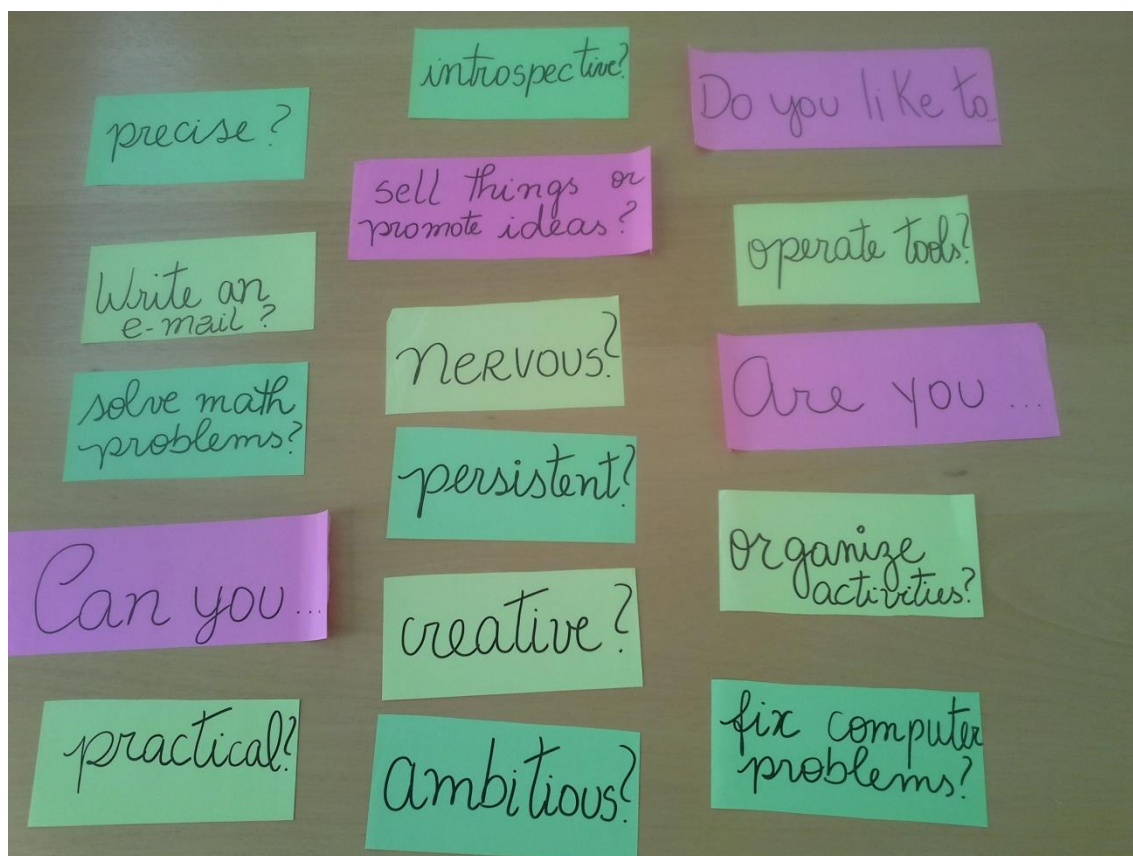 precise?
Write an
e-mail?
solve math
problems?
Can you...
practical?
introspective?
sell things or
promote ideas?
NERVOUS?
persistent?
creative?
ambitious?
Do you like to..
operate tools?
Are you ...
organize
activities?
fix computer
problems?